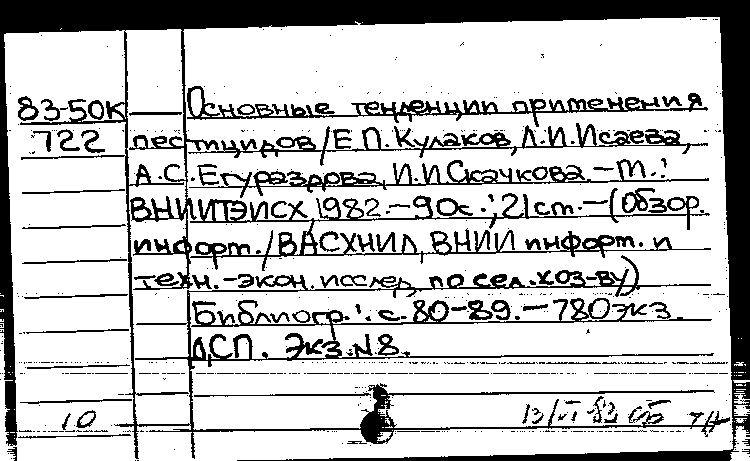 83-50К Основные тенденции применения
722 пестицидов/Е.П.Кулаков, Л.И.Исаева,
А.С.Егураздова, И.И.Скачкова.-М.:
ВНИИТЭИСХ, 1982.-90с.; 21см.-(Обзор.
информ./ВАСХНИЛ, ВНИИ информ. и
техн.-экон. исслед. по сел. хоз-ву).
Библиогр.: с.80-89.-780экз.
ДСП. Экз.N8.
10 13/VI 83